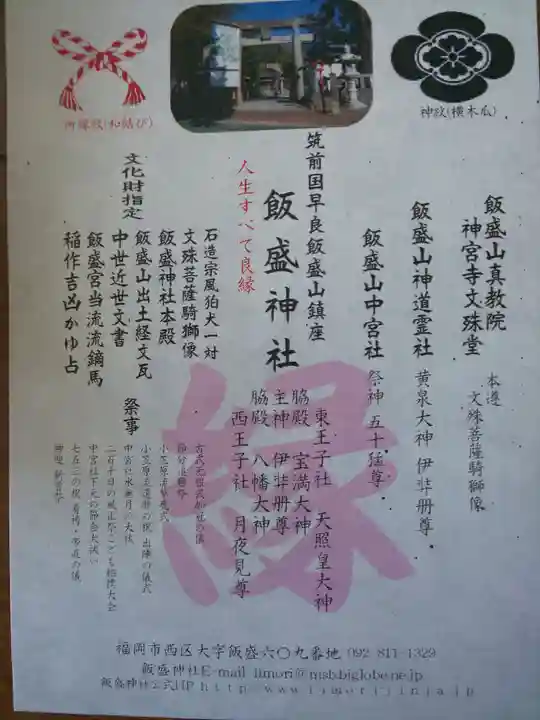 御縁紋(和結び)
神紋(横木瓜)
飯盛山真教院
神宮寺文殊堂
本尊 文殊菩薩騎獅像
飯盛山神道霊社
黄泉大神 伊弉冊尊
飯盛山中宮社
祭神 五十猛尊
筑前国早良飯盛山鎮座
飯盛神社
東王子社 天照皇大神
脇殿 宝満大神
主神 伊弉冊尊
脇殿 八幡大神
西王子社 月夜見尊
人生すべて良縁
縁
文化財指定
石造宗風狛犬一対
文殊菩薩騎獅像
飯盛神社本殿
飯盛山出土経文瓦
中世近世文書
飯盛宮当流流鏑馬
稲作吉凶かゆ占
祭事
中宮社水無月の大祓
二百十日の風止祭こども相撲大会
中宮社下元の節会大祓い
七五三の祝着袴・帯直の儀
福岡市西区大字飯盛六〇九番地 092-811-1329
飯盛神社E-mail iimori@msb.biglobe.ne.jp
飯盛神社公式HP http://www.iimorijinja.jp